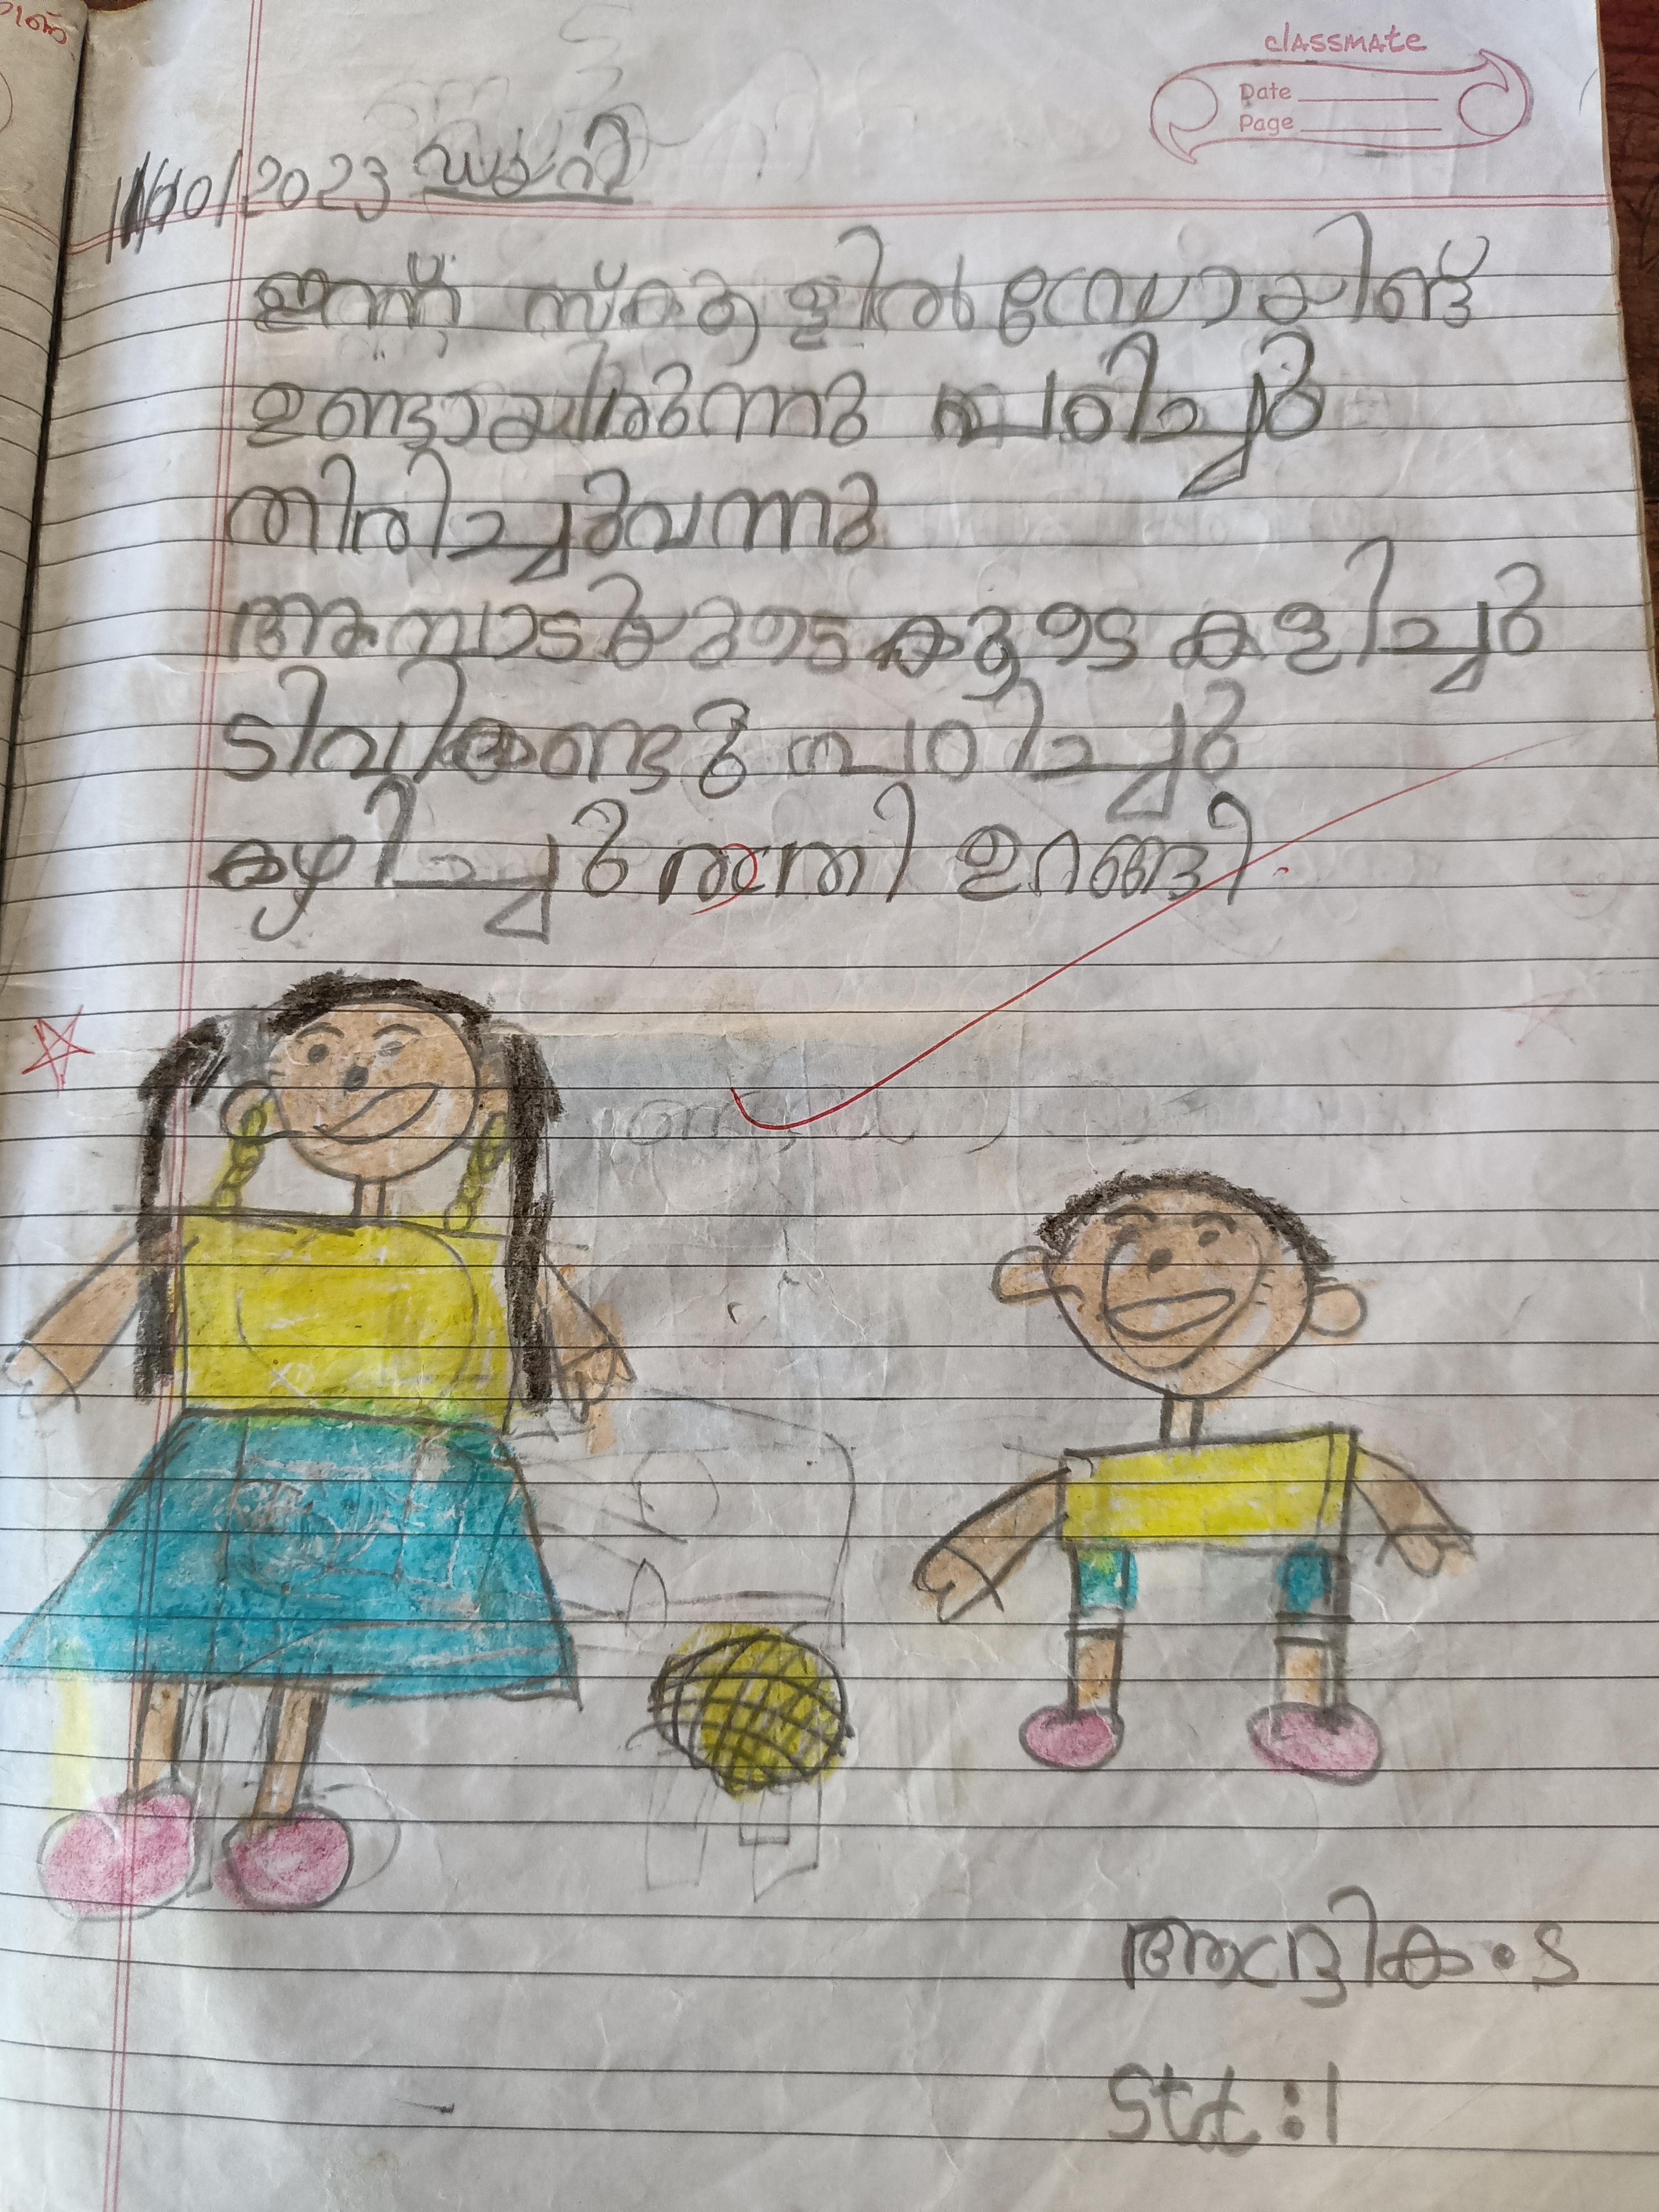 classmate
Date
Page
11/10/2023 ഡയറി
ഇന്ന് സ്കൂളിൽ
ഉണ്ടായിരുന്നു പഠിച്ചു
തിരിച്ചുവന്നു
അമ്പാടിയുടെ കൂടെ കളിച്ചു
ടിവി കണ്ടു പഠിച്ചു
കഴിച്ചു ഉറങ്ങി.
ആദ്രിക.S
Std:1